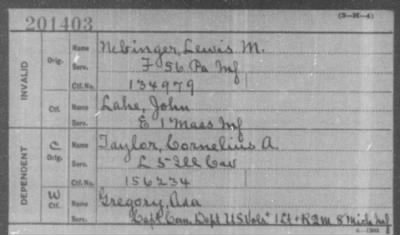 201403
(3-H-4)
INVALID
Orig.
Name Nebinger, Lewis M.
Serv. F 56 Pa Inf
Ctf. No. 134979
Ctf.
Name Lake, John
Serv. E 1 Mass Inf
DEPENDENT
C
Orig.
Name Taylor, Cornelius A.
Serv. L 5 Ill Cav
Ctf. No. 156234
W
Ctf.
Name Gregory, Asa
Serv. Capt Com. Dept US Vols + 1 Lt + R2M 8 Mich Inf